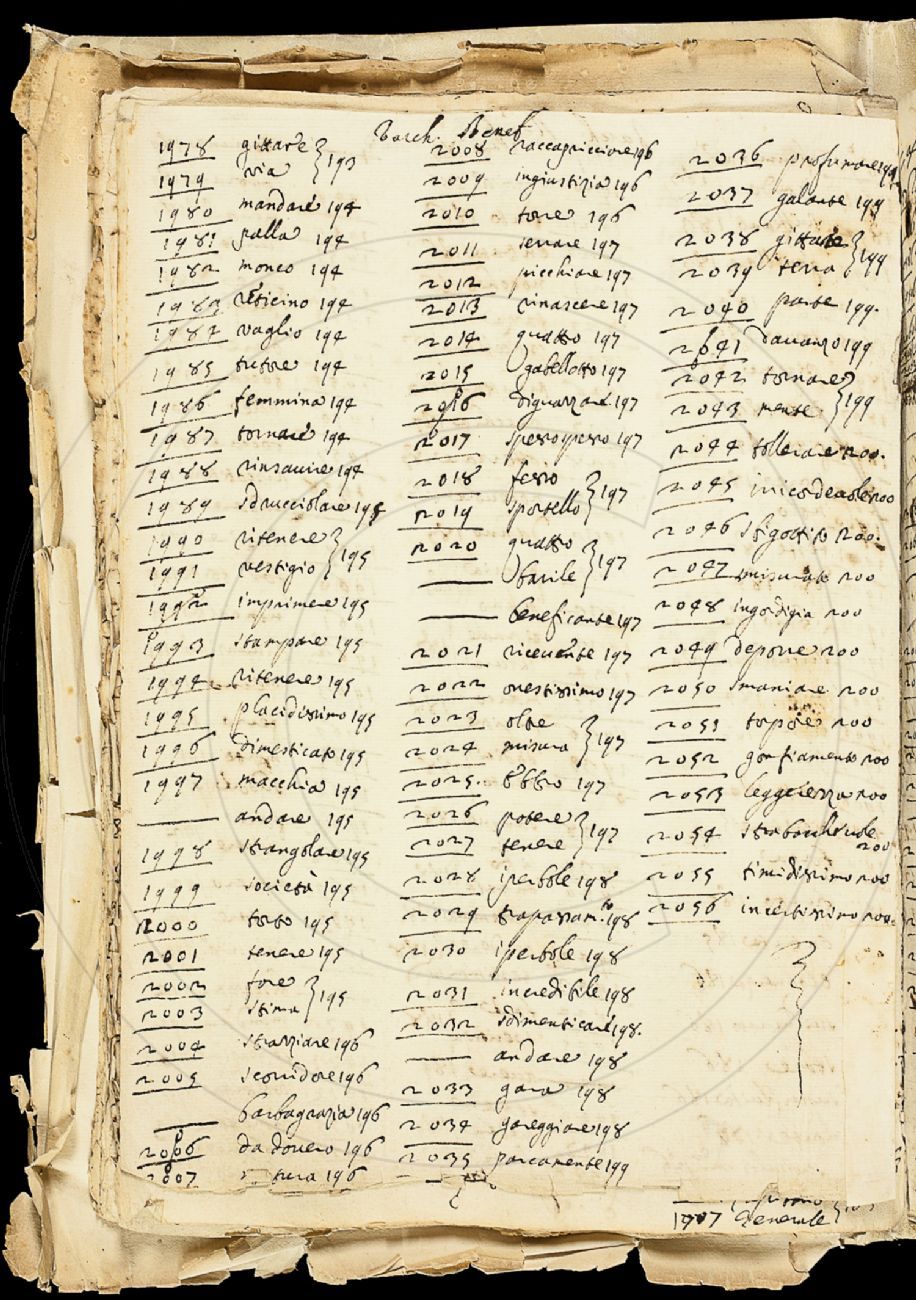 Varch. Benef.
1978 gittare } 193
1979 via
1980 mandare 194
1981 palla 194
1982 monco 194
1983 resticino 194
1984 vaglio 194
1985 tutore 194
1986 femmina 194
1987 tornare 194
1988 rinsavire 194
1989 sdrucciolare 195
1990 ritenere } 195
1991 vestigio
1992 imprimere 195
1993 stampare 195
1994 ritenere 195
1995 placidissimo 195
1996 dimesticato 195
1997 macchia 195
— andare 195
1998 strangolare 195
1999 società 195
2000 torto 195
2001 tenere 195
2002 fore } 195
2003 stima
2004 straziare 196
2005 scorridore 196
— barbagrazia 196
2006 da dovero 196
2007 196
2008 raccapricciare 196
2009 ingiustizia 196
2010 torre 196
2011 serrare 197
2012 picchiare 197
2013 rinascere 197
2014 quatto 197
2015 gabellotto 197
2016 diguazzare 197
2017 spesso spesso 197
2018 ferro } 197
2019 sportello
2020 quatto } 197
— barile
— beneficante 197
2021 ricevente 197
2022 onestissimo 197
2023 oltre } 197
2024 misura
2025 Ebbro 197
2026 potere } 197
2027 tenere
2028 iperbole 198
2029 trapassam.to 198
2030 iperbole 198
2031 incredibile 198
2032 sdimenticare 198.
— andare 198
2033 gara 198
2034 gareggiare 198
2035 parcamente 199
2036 profumare 199
2037 galante 199
2038 gittare } 199
2039 terra
2040 parte 199.
2041 davanzo 199
2042 tornare } 199
2043 mente
2044 tollerare 200.
2045 inricordevole 200
2046 sbigottito 200.
2047 misurato 200
2048 ingordigia 200
2049 deporre 200
2050 smaniare 200
2051 torpore 200
2052 gonfiamento 200
2053 leggerezza 200
2054 200
2055 timidissimo 200
2056 incertissimo 200.
1977 Generale